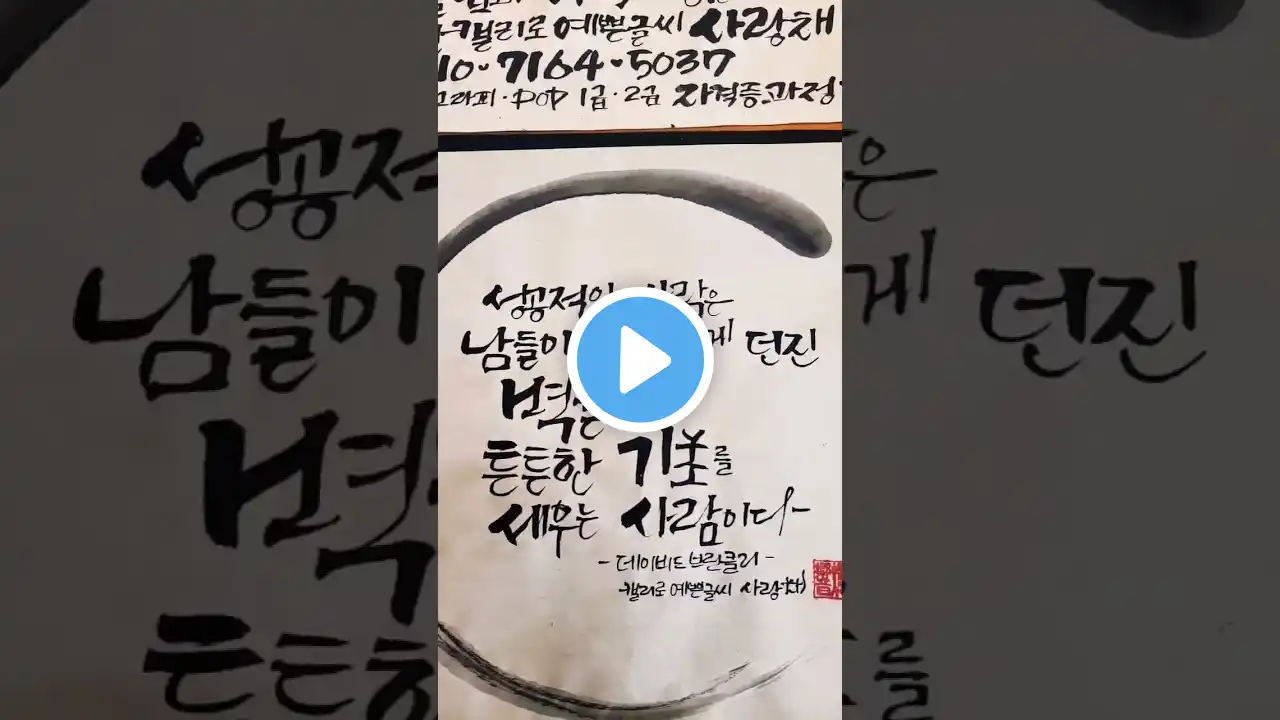 캘리로 예쁜글씨 사랑채
10·7164·5037
그라피·POP 1급·2급 자격증과정
성공적인 사람은
남들이 게 던진
벽돌
튼튼한 기초를
세우는 사람이다-
-데이비드 브린클리-
캘리로 예쁜글씨 사랑채